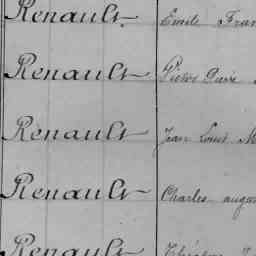 Renault Emile Fran
Renault Victor Désiré
Renault Jean Louis M
Renault Charles augus
Renault